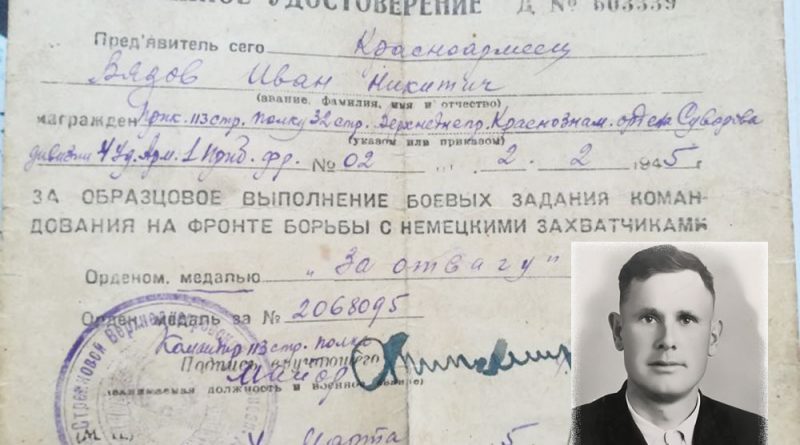 УДОСТОВЕРЕНИЕ Д № 603539
Пред'явитель сего Красноармеец
Вядов Иван Никитич
(звание, фамилия, имя и отчество)
награжден стр. полку 32 стр. Верхнеднепр. Краснознам. ордена Суворова
(указом или приказом)
дивизии 4 Уд. Арм. 1 Приб. фр. № 02 2. 2 1945 г.
ЗА ОБРАЗЦОВОЕ ВЫПОЛНЕНИЕ БОЕВЫХ ЗАДАНИЯ КОМАН-
ДОВАНИЯ НА ФРОНТЕ БОРЬБЫ С НЕМЕЦКИМИ ЗАХВАТЧИКАМИ
Орденом, медалью „За отвагу"
Орден, медаль за № 2068095
Командир 113 стр. полка
Подпись вручающего
Майор
(занимаемая должность и военное звание)
(М. П.) Марта 5